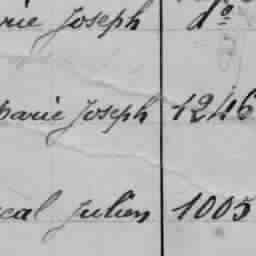 rie Joseph dº
Marie Joseph 1246
cal Julien 1005